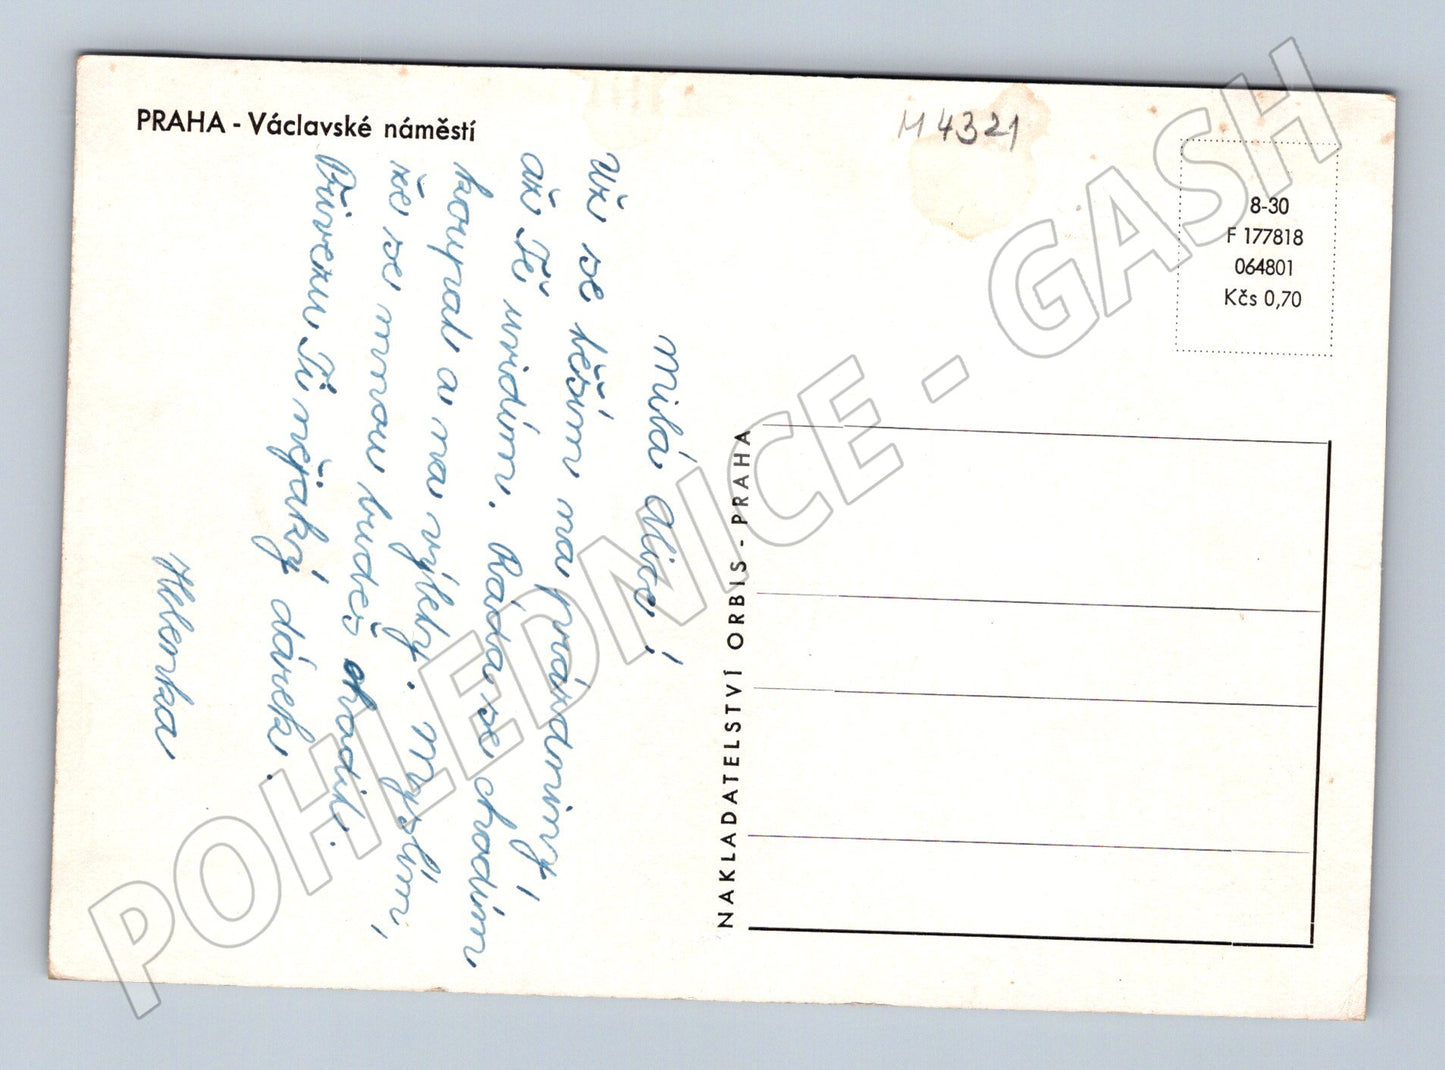 PRAHA - Václavské náměstí
M 4321
8-30
F 177818
064801
Kčs 0,70
Milá Alice!
Už se těším na prázdniny,
až Tě uvidím. Ráda se chodím
koupat a na výlety. Myslím,
že se mnou budeš chodit.
Přivezu Ti nějaký dárek.
Helenka
NAKLADATELSTVÍ ORBIS - PRAHA
POHLEDNICE - GASH